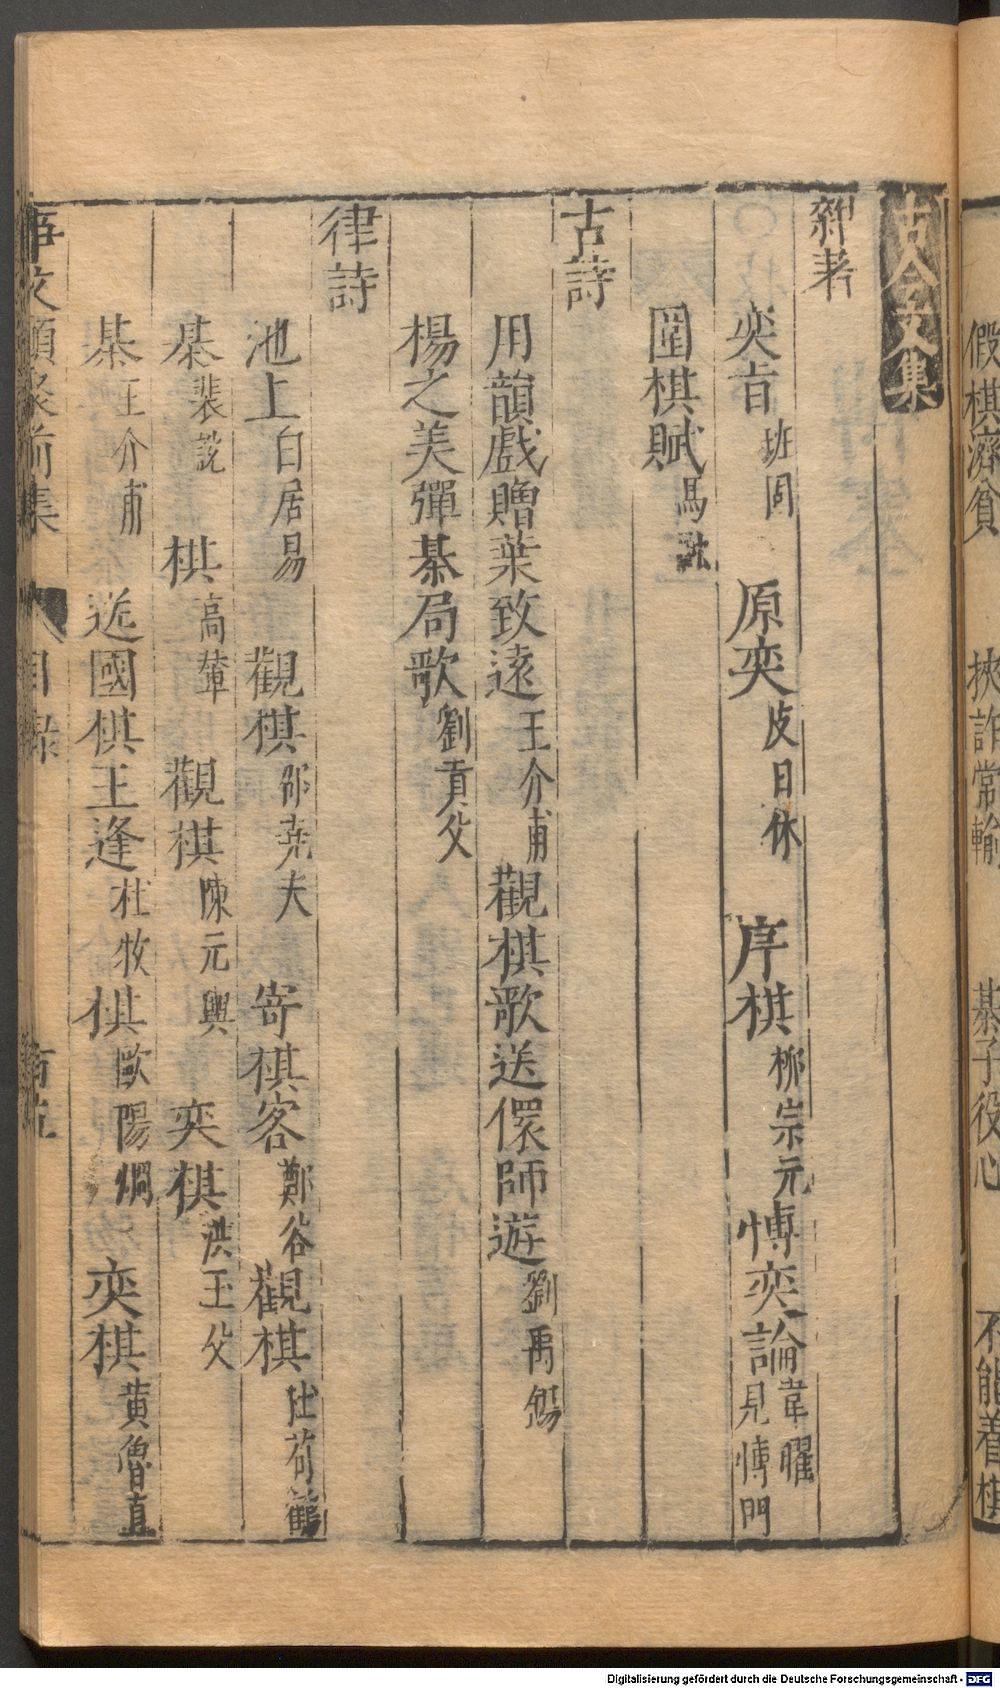 假棋濟貧 挾詐常輸 棊子役心 不能着棋
古今文集
雜著
奕旨 班固 原奕 皮日休 序棋 柳宗元 博奕論 韋曜 見博門
圍棋賦 馬融
古詩
用韻戲贈葉致遠 王介甫 觀棋歌送儇師遊 劉禹錫
楊之美彈棊局歌 劉貢父
律詩
池上 白居易 觀棋 邵尭夫 寄棋客 鄭谷 觀棋 杜荀鶴
棊 裴説 棋 高輦 觀棋 陳元興 奕棋 洪玉父
棊 王介甫 送國棋王逢 杜牧 棋 歐陽烱 奕棋 黄魯直
事文類聚前集 目録
Digitalisierung gefördert durch die Deutsche Forschungsgemeinschaft - DFG